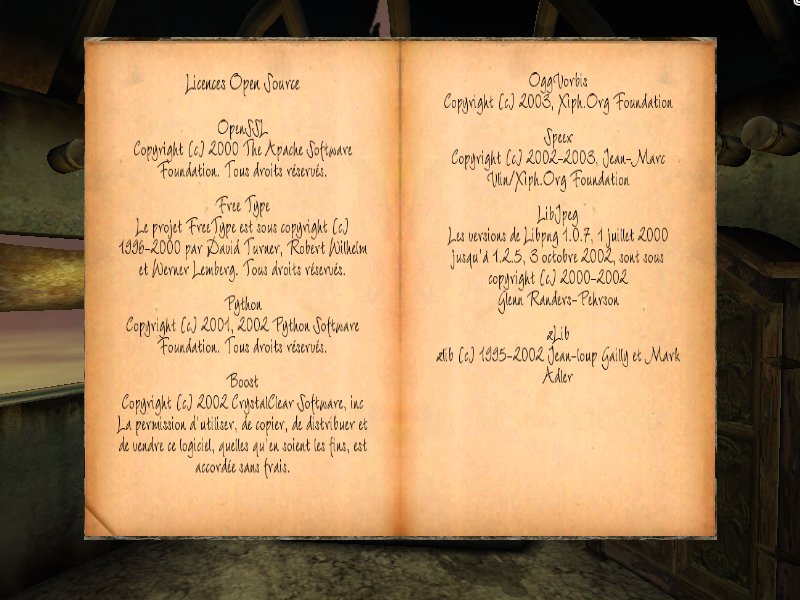 Licences Open Source
OpenSSL
Copyright (c) 2000 The Apache Software
Foundation. Tous droits réservés.
Free Type
Le projet FreeType est sous copyright (c)
1996-2000 par David Turner, Robert Wilhelm
et Werner Lemberg. Tous droits réservés.
Python
Copyright (c) 2001, 2002 Python Software
Foundation. Tous droits réservés.
Boost
Copyright (c) 2002 CrystalClear Software, inc
La permission d'utiliser, de copier, de distribuer et
de vendre ce logiciel, quelles qu'en soient les fins, est
accordée sans frais.
OggVorbis
Copyright (c) 2003, Xiph.Org Foundation
Speex
Copyright (c) 2002-2003, Jean-Marc
Vlin/Xiph.Org Foundation
LibJpeg
Les versions de Libpng 1.0.7, 1 juillet 2000
jusqu'à 1.2.5, 3 octobre 2002, sont sous
copyright (c) 2000-2002
Glenn Randers-Pehrson
zLib
zlib (c) 1995-2002 Jean-loup Gailly et Mark
Adler